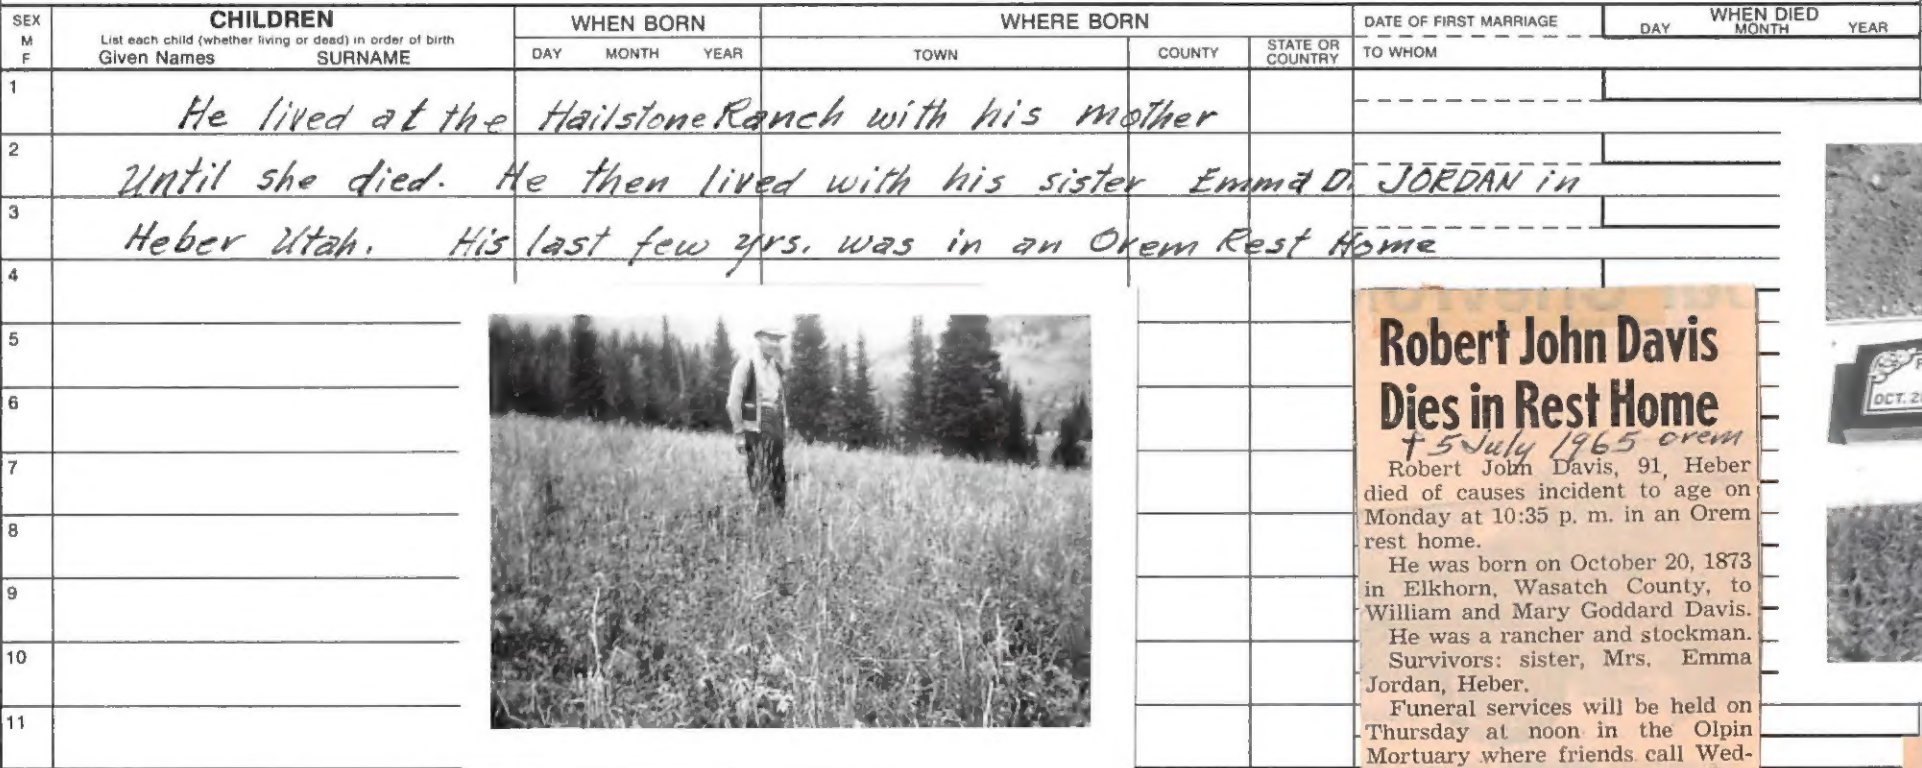 SEX
M
F
CHILDREN
List each child (whether living or dead) in order of birth
Given Names SURNAME
WHEN BORN
DAY MONTH YEAR
WHERE BORN
TOWN COUNTY STATE OR COUNTRY
DATE OF FIRST MARRIAGE
TO WHOM
WHEN DIED
DAY MONTH YEAR
1
He lived at the Hailstone Ranch with his mother
2
Until she died. He then lived with his sister Emma D. JORDAN in
3
Heber Utah. His last few yrs. was in an Orem Rest Home
4
5
6
7
8
9
10
11
Robert John Davis
Dies in Rest Home
† 5 July 1965 orem
Robert John Davis, 91, Heber
died of causes incident to age on
Monday at 10:35 p. m. in an Orem
rest home.
He was born on October 20, 1873
in Elkhorn, Wasatch County, to
William and Mary Goddard Davis.
He was a rancher and stockman.
Survivors: sister, Mrs. Emma
Jordan, Heber.
Funeral services will be held on
Thursday at noon in the Olpin
Mortuary where friends call Wed-
OCT. 2